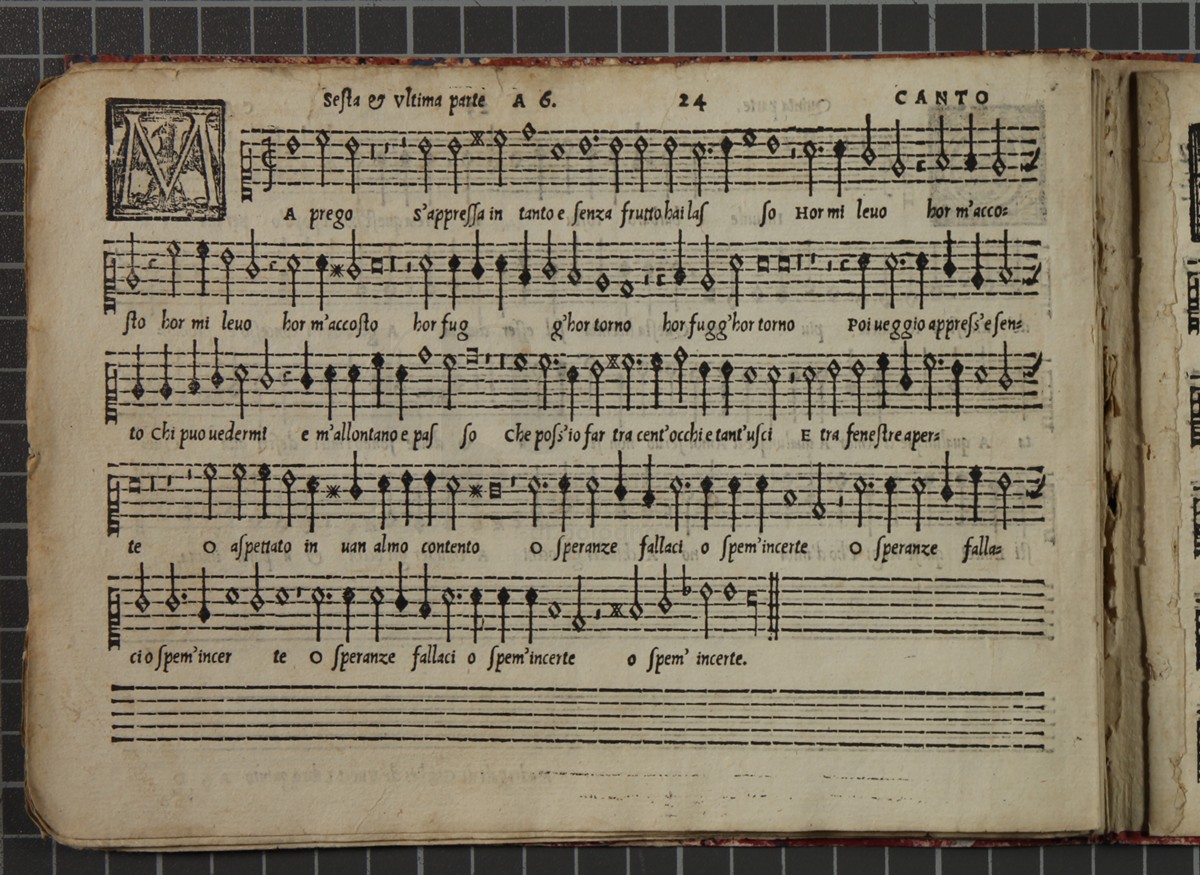 Sesta & vltima parte A 6. 24 CANTO
M
A prego S'appressa in tanto e senza frutto hai las so Hor mi leuo hor m'acco=
sto hor mi leuo hor m'accosto hor fug g'hor torno hor fugg'hor torno Poi ueggio appress' e sen=
to Chi puo uedermi e m'allontano e pas so Che poss'io far tra cent'occhi e tant'usci E tra fenestre aper=
te O aspettato in uan almo contento O speranze fallaci o spem'incerte O speranze falla=
ci o spem'incer te O speranze fallaci o spem'incerte o spem' incerte.